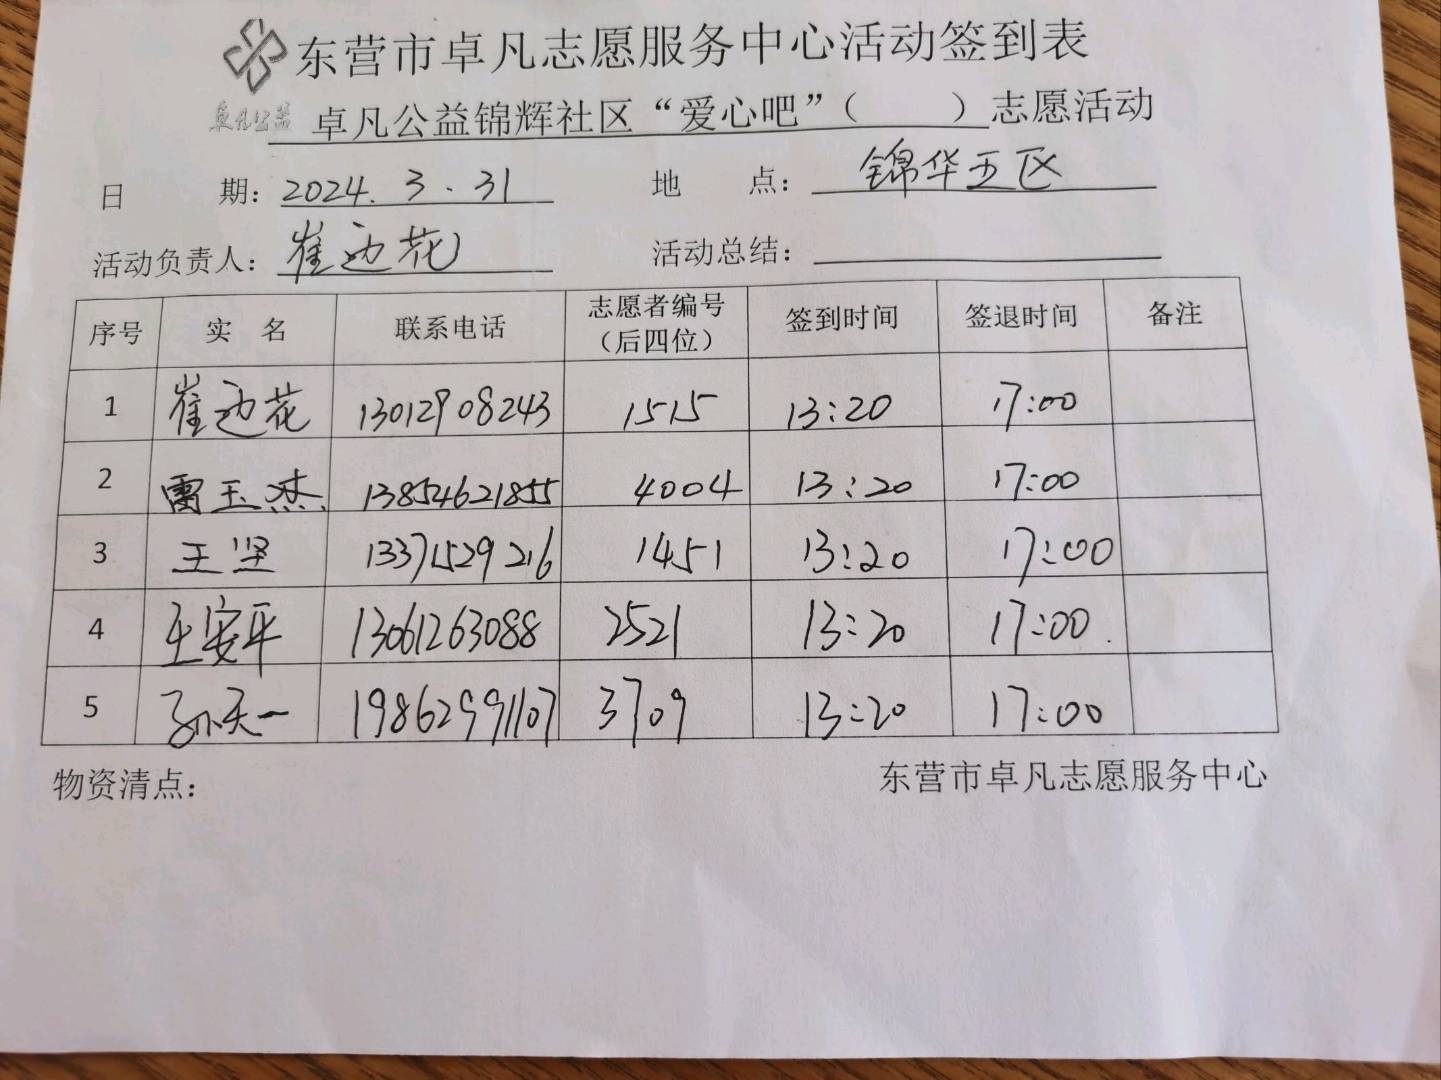 东营市卓凡志愿服务中心活动签到表
卓凡公益 卓凡公益锦辉社区“爱心吧”（ ）志愿活动
日 期：2024.3.31 地 点：锦华五区
活动负责人：崔迎花 活动总结：
序号 实 名 联系电话 志愿者编号（后四位） 签到时间 签退时间 备注
1 崔迎花 13012908243 1515 13:20 17:00
2 雷玉杰 13854621855 4004 13:20 17:00
3 王坚 13371529216 1451 13:20 17:00
4 王安平 13061263088 2521 13:20 17:00
5 孙天一 19862991107 3709 13:20 17:00
物资清点： 东营市卓凡志愿服务中心